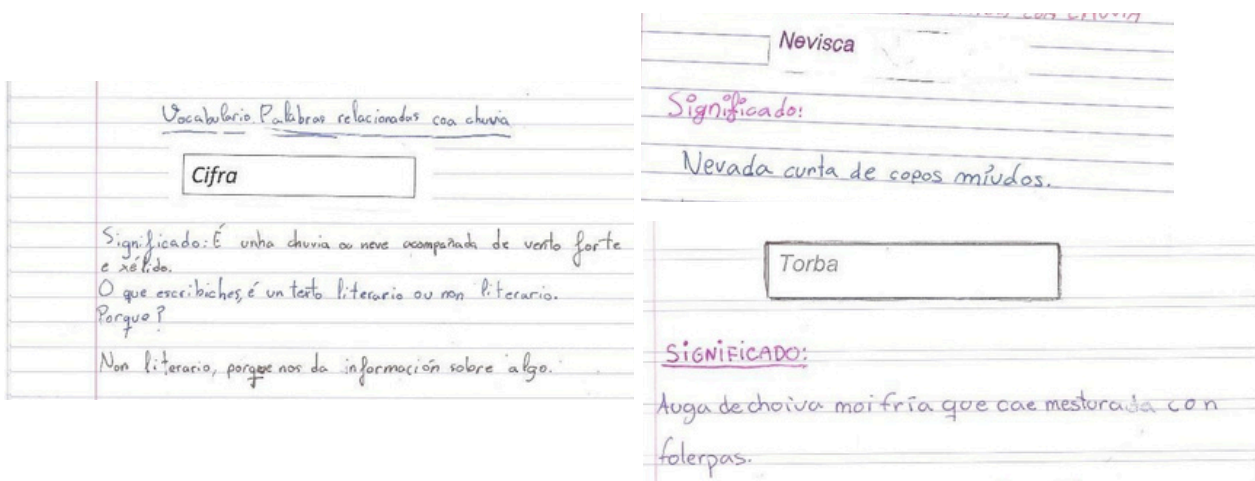 Vocabulario. Palabras relacionadas coa chuvia
Cifra
Significado: É unha chuvia ou neve acompañada de vento forte
e xélido.
O que escribiches, é un texto literario ou non literario.
Porque?
Non literario, porque nos da información sobre algo.
COA CHUVIA
Nevisca
Significado:
Nevada curta de copos míudos.
Torba
SIGNIFICADO:
Auga de choiva moi fría que cae mesturada con
folerpas.